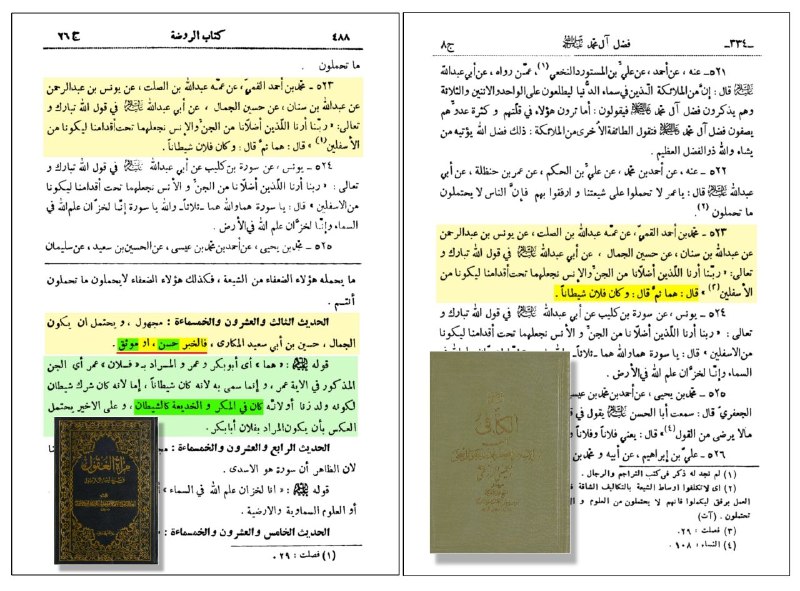 كتاب الروضة
ج ٢٦
٤٨٨
ما تحملون .
٥٢٣ ـ محمد بن أحمد القمي ، عن عمه عبدالله بن الصلت ، عن يونس بن عبدالرحمن
عن عبدالله بن سنان ، عن حسين الجمال ، عن أبي عبدالله عليه السلام في قول الله تبارك و
تعالى: « ربنا أرنا اللذين أضلانا من الجن والإنس نجعلهما تحت أقدامنا ليكونا من
الأسفلين (١) » قال : هما ثم قال : وكان فلان شيطاناً .
٥٢٤ ـ يونس ، عن سورة بن كليب عن أبي عبدالله عليه السلام في قول الله تبارك و
تعالى : « ربنا أرنا اللذين أضلانا من الجن و الأنس نجعلهما تحت أقدامنا ليكونا
من الأسفلين » قال : يا سورة هما والله هما ـ ثلاثاً ـ والله يا سورة إنا لخزان علم الله في
السماء وإنا لخزان علم الله في الأرض .
٥٢٥ ـ محمد بن يحيى ، عن أحمد بن محمد بن عيسى ، عن الحسين بن سعيد ، عن سليمان
ما يحمله هؤلاء الضعفاء من الشيعة ، فكذلك هؤلاء الضعفاء لايحملون ما تحملون
أنتم .
الحديث الثالث والعشرون والخمسمائة : مجهول ، و يحتمل ان يكون
الجمال ، حسين بن أبي سعيد المكارى ، فالخبر حسن ، او موثق .
قوله عليه السلام : « هما » أى أبوبكر و عمر و المراد بـ « فلان » عمر أى الجن
المذكور في الاية عمر ، و إنما سمى به لانه كان شيطاناً ، إما لانه كان شرك شيطان
لكونه ولد زنا أو لانه كان في المكر و الخديعة كالشيطان ، و على الاخير يحتمل
العكس بأن يكون المراد بفلان أبابكر .
الحديث الرابع والعشرون والخمسمائة :
لان الظاهر أن سورة هو الاسدى .
قوله عليه السلام : « انا لخزان علم الله في السماء »
أو العلوم السماوية والارضية .
الحديث الخامس والعشرون والخمسمائة :
(١) فصلت : ٢٩ .
مرآة العقول
ـ٣٣٤ـ
فضل آل محمد عليهم السلام
ج٨
٥٢١ ـ عنه ، عن أحمد ، عن علي بن المستورد النخعي (١) ، عمن رواه ، عن أبي عبدالله
عليه السلام قال : إن من الملائكة الذين في سماء الدنيا ليطلعون على الواحد والاثنين والثلاثة
وهم يذكرون فضل آل محمد عليهم السلام فيقولون : أما ترون هؤلاء في قلتهم و كثرة عدوهم
يصفون فضل آل محمد عليهم السلام فتقول الطائفة الأخرى من الملائكة : ذلك فضل الله يؤتيه من
يشاء والله ذو الفضل العظيم .
٥٢٢ ـ عنه ، عن أحمد بن محمد ، عن علي بن الحكم ، عن عمر بن حنظلة ، عن أبي
عبدالله عليه السلام قال : ياعمر لا تحملوا على شيعتنا و ارفقوا بهم فإن الناس لا يحتملون
ما تحملون (٢) .
٥٢٣ ـ محمد بن أحمد القمي ، عن عمه عبدالله بن الصلت ، عن يونس بن عبدالرحمن
عن عبدالله بن سنان ، عن حسين الجمال ، عن أبي عبدالله عليه السلام في قول الله تبارك و
تعالى: « ربنا أرنا اللذين أضلانا من الجن والإنس نجعلهما تحت أقدامنا ليكونا من
الأسفلين (٣) » قال : هما ثم قال : وكان فلان شيطاناً .
٥٢٤ ـ يونس ، عن سورة بن كليب عن أبي عبدالله عليه السلام في قول الله تبارك و
تعالى : « ربنا أرنا اللذين أضلانا من الجن و الأنس نجعلهما تحت أقدامنا ليكونا
من الأسفلين » قال : يا سورة هما والله هما ـ ثلاثاً ـ
السماء وإنا لخزان علم الله في الأرض .
٥٢٥ ـ محمد بن يحيى ، عن أحمد بن محمد بن عيسى
الجعفري قال : سمعت أبا الحسن عليه السلام يقول في
مالا يرضى من القول (٤) » قال : يعني فلاناً وفلاناً و
٥٢٦ ـ علي بن إبراهيم ، عن أبيه و محمد بن
(١) لم نجد له ذكر في كتب التراجم والرجال .
(٢) أى لا تكلفوا اوساط الشيعة بالتكاليف الشاقة
العمل برفق ليكملوا فانهم لا يحتملون من العلوم و
تحتملون . (آت)
(٣) فصلت : ٢٩ .
(٤) النساء : ١٠٨ .
الكافي